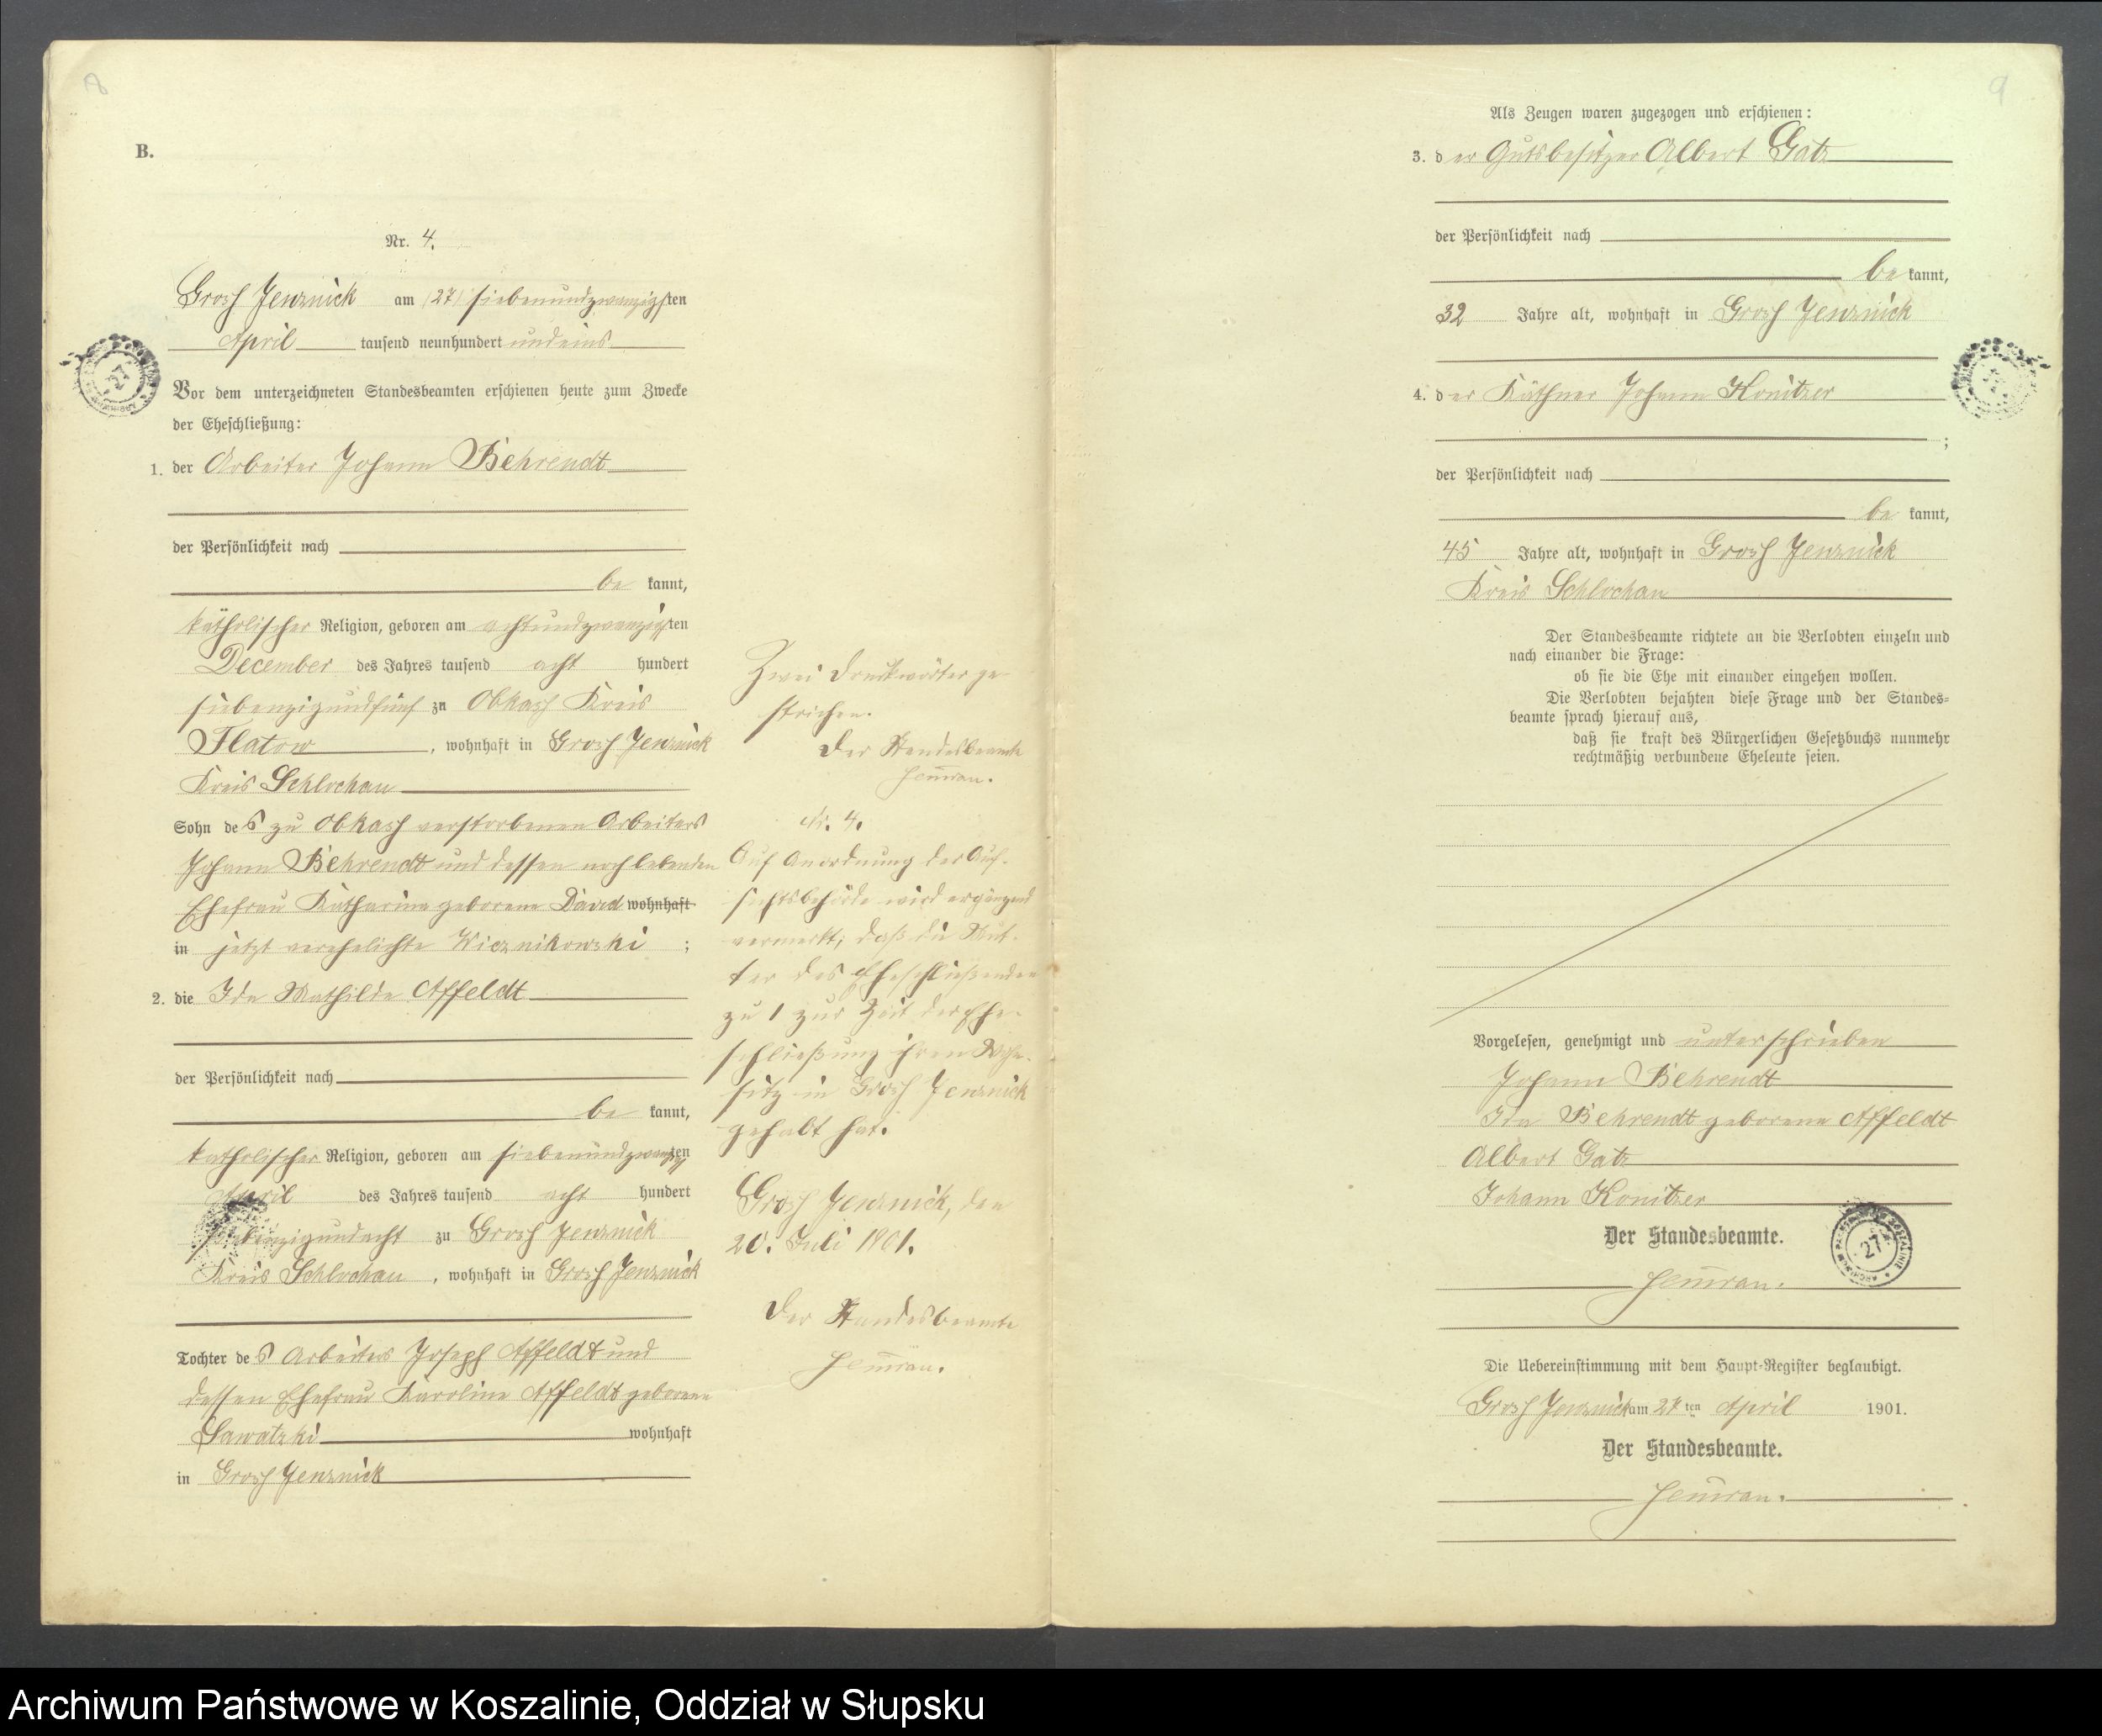 8
B.
Nr. 4.
Gross Jenznick am (27) siebenundzwanzigsten
April tausend neunhundert undeins
Vor dem unterzeichneten Standesbeamten erschienen heute zum Zwecke
der Eheschließung:
1. der Arbeiter Johann Behrendt
der Persönlichkeit nach
be kannt,
katholischer Religion, geboren am achtundzwanzigsten
December des Jahres tausend acht hundert
siebenzigundfünf zu Obkass Kreis
Flatow, wohnhaft in Gross Jenznick
Kreis Schlochau
Sohn des zu Obkass verstorbenen Arbeiters
Johann Behrendt und dessen noch lebenden
Ehefrau Katharina geborene David wohnhaft
in jetzt verehelichte Wieznikowski;
2. die Ida Mathilde Affeldt
der Persönlichkeit nach
be kannt,
katholischer Religion, geboren am siebenundzwanzigsten
April des Jahres tausend acht hundert
siebenzigundacht zu Gross Jenznick
Kreis Schlochau, wohnhaft in Gross Jenznick
Tochter des Arbeiters Joseph Affeldt und
dessen Ehefrau Karoline Affeldt geborene
Sawatzki wohnhaft
in Gross Jenznick
Zwei Druckwörter ge-
strichen.
Der Standesbeamte
Nr. 4.
Auf Anordnung der Auf-
sichtsbehörde wird ergänzend
vermerkt, daß die Mut-
ter des Eheschließenden
zu 1 zur Zeit der Ehe-
schließung ihren Wohn-
sitz in Gross Jenznick
gehabt hat.
Gross Jenznick, den
20. Juli 1901.
Der Standesbeamte
9
Als Zeugen waren zugezogen und erschienen:
3. der Gutsbesitzer Albert Gatz
der Persönlichkeit nach
be kannt,
32 Jahre alt, wohnhaft in Gross Jenznick
4. der Käthner Johann Konitzer
;
der Persönlichkeit nach
be kannt,
45 Jahre alt, wohnhaft in Gross Jenznick
Kreis Schlochau
Der Standesbeamte richtete an die Verlobten einzeln und
nach einander die Frage:
ob sie die Ehe mit einander eingehen wollen.
Die Verlobten bejahten diese Frage und der Standes-
beamte sprach hierauf aus,
daß sie kraft des Bürgerlichen Gesetzbuchs nunmehr
rechtmäßig verbundene Eheleute seien.
Vorgelesen, genehmigt und unterschrieben
Johann Behrendt
Ida Behrendt geborene Affeldt
Albert Gatz
Johann Konitzer
Der Standesbeamte.
27
Die Uebereinstimmung mit dem Haupt-Register beglaubigt.
Gross Jenznick am 27ten April 1901.
Der Standesbeamte.
Archiwum Państwowe w Koszalinie, Oddział w Słupsku